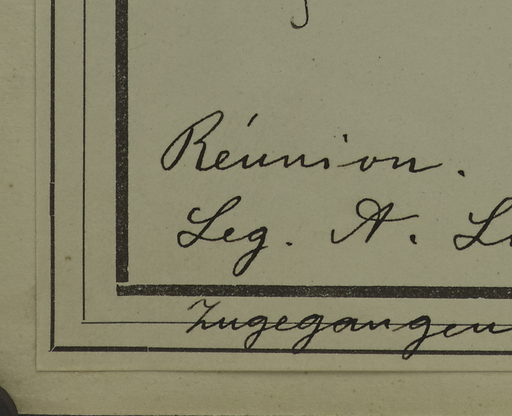 Réunion.
Leg. A.
Zugegangen